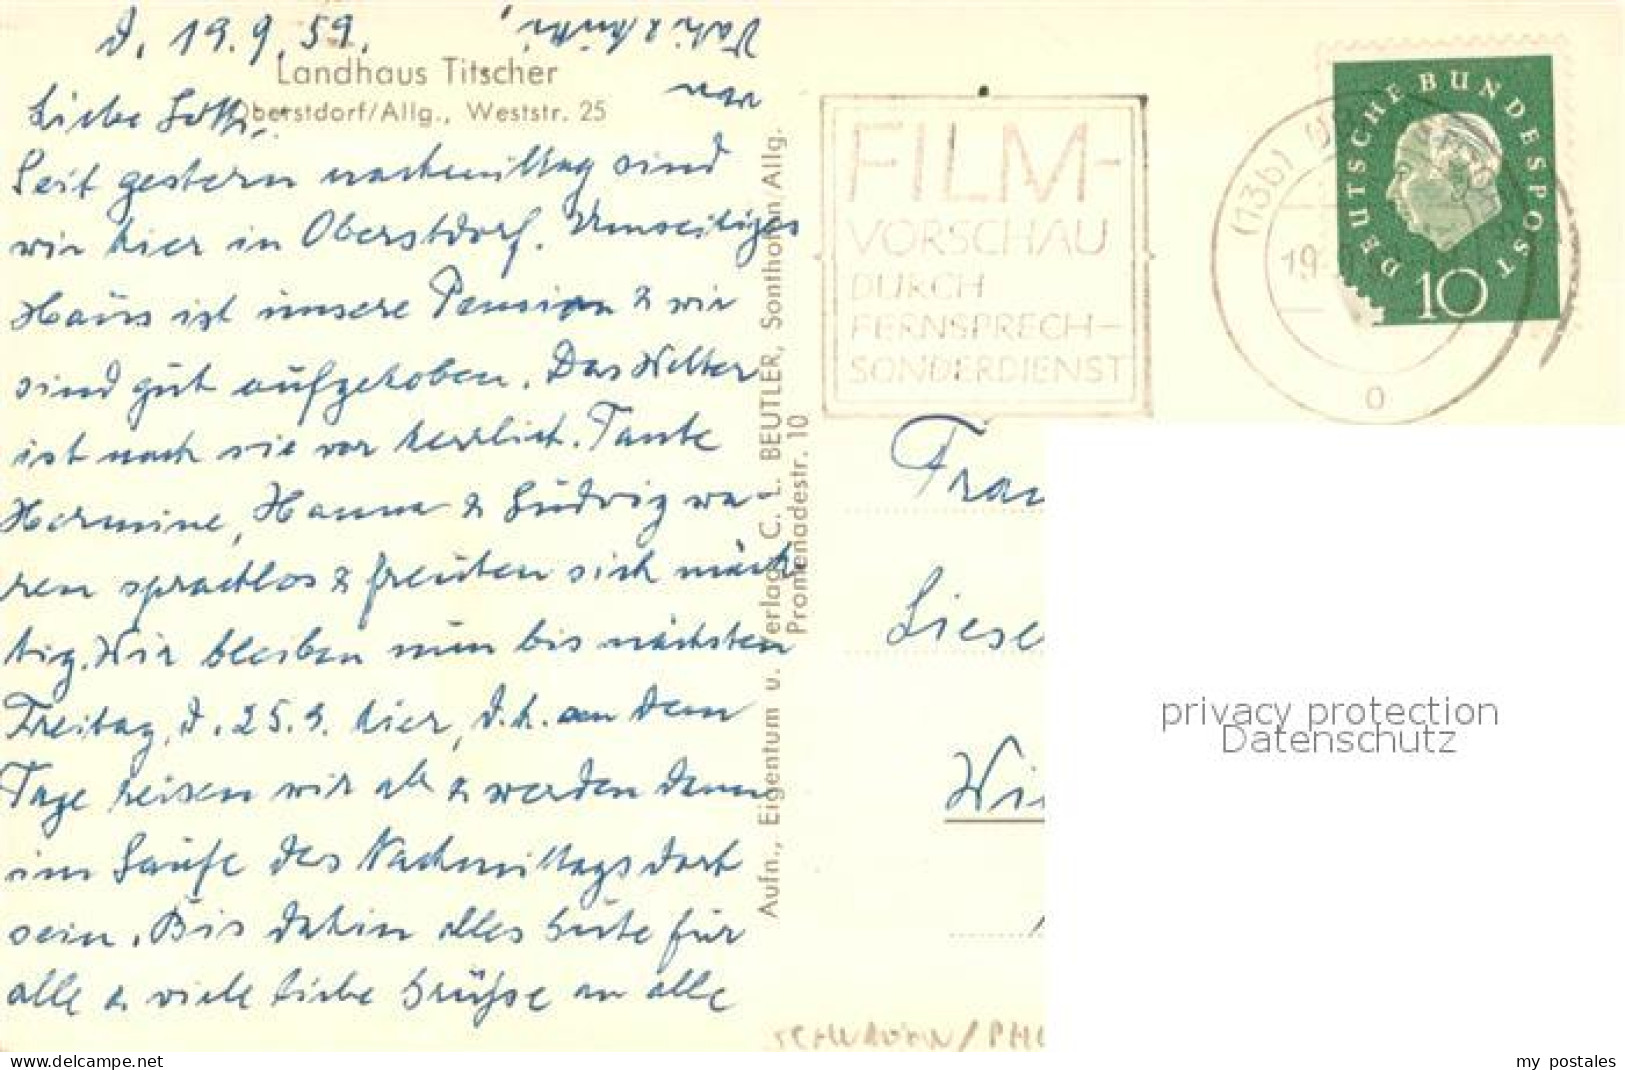 d. 19.9.59.
Landhaus Titscher
Oberstdorf/Allg., Weststr. 25
Liebe Lotti,
Seit gestern nachmittag sind
wir hier in Oberstdorf. Umseitiges
Haus ist unsere Pension & wir
sind gut aufgehoben. Das Wetter
ist nach wie vor herrlich. Tante
Hermine, Hanna & Ludwig wa-
ren sprachlos & freuten sich mäch-
tig. Wir bleiben nun bis nächsten
Freitag, d. 25.9. hier, d.h. an dem
Tage reisen wir ab & werden dann
im Laufe des Nachmittags dort
sein. Bis dahin alles Gute für
alle & viele liebe Grüsse an alle
von
Vati & Mutti
Aufn., Eigentum u. Verlag C. L. BEUTLER, Sonthofen/Allg.
Promenadestr. 10
FILM-
VORSCHAU
DURCH
FERNSPRECH-
SONDERDIENST
(13b)
19
o
DEUTSCHE BUNDESPOST
10
Frau
Liese
Wi
privacy protection
Datenschutz
www.delcampe.net
my_postales